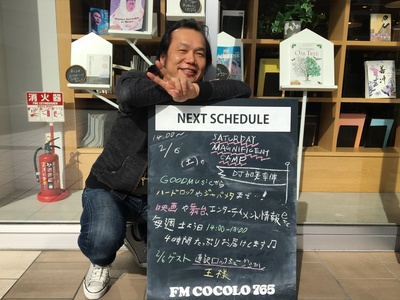 消火器
NEXT SCHEDULE
14:00〜
2/6
(土)
SATURDAY
MAGNIFICENT
CAMP
DJ 加美幸伸
GOOD MUSICから
ハードロックやヘビーメタまで!
映画や舞台エンターテイメント情報など
毎週土よう日 14:00-18:00
4時間たっぷりお届けします♪
2/6 ゲスト 直訳ロックミュージシャン
王様
FM COCOLO 765